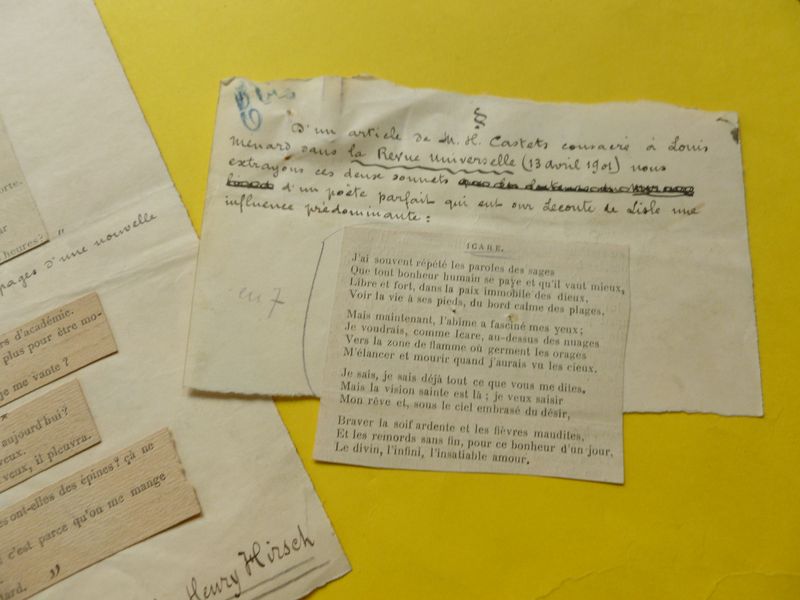 orte.
ar
heures?
"
pages d'une nouvelle
rs d'académic.
plus pour être mo-
je me vante?
aujourd'hui?
veux.
veux, il pleuvra.
sont-elles des épines? çà ne
c'est parce qu'on me mange
dard. "
Henry Hirsch
6 bis
§
D'un article de M. H. Castets consacré à Louis
Ménard dans la Revue Universelle (13 avril 1901) nous
extrayons ces deux sonnets
d'un poète parfait qui eut sur Leconte de Lisle une
influence prédominante :
en 7
ICARE.
J'ai souvent répété les paroles des sages
Que tout bonheur humain se paye et qu'il vaut mieux,
Libre et fort, dans la paix immobile des dieux,
Voir la vie à ses pieds, du bord calme des plages.
Mais maintenant, l'abîme a fasciné mes yeux;
Je voudrais, comme Icare, au-dessus des nuages
Vers la zone de flamme où germent les orages
M'élancer et mourir quand j'aurais vu les cieux.
Je sais, je sais déjà tout ce que vous me dites.
Mais la vision sainte est là; je veux saisir
Mon rêve et, sous le ciel embrasé du désir,
Braver la soif ardente et les fièvres maudites,
Et les remords sans fin, pour ce bonheur d'un jour,
Le divin, l'infini, l'insatiable amour.